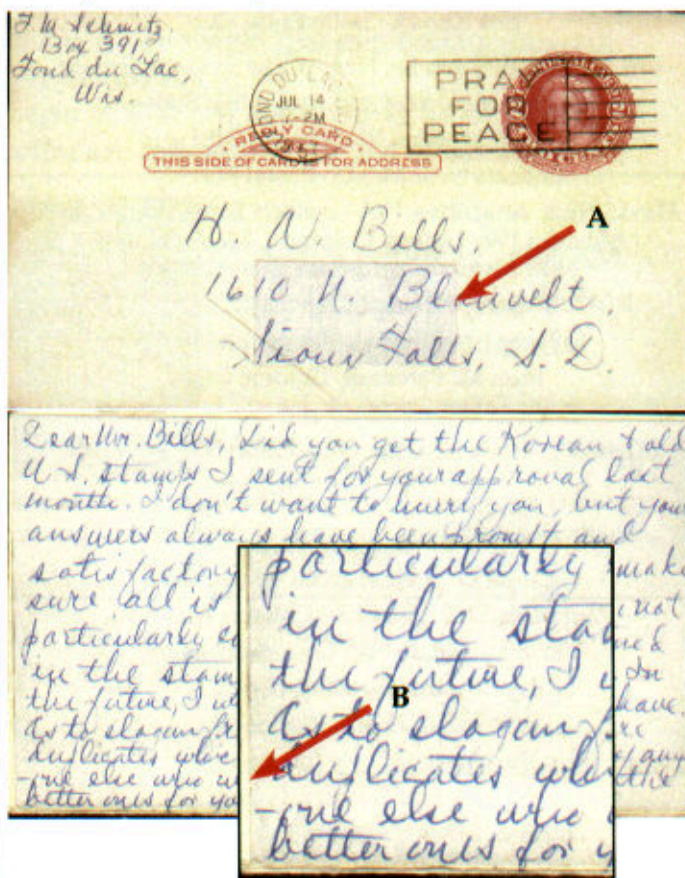 F. M. Schmitz
Box 391
Fond du Lac,
Wis.
FOND DU LAC
JUL 14
PM
PRAY
FOR
PEACE
REPLY CARD
THIS SIDE OF CARD IS FOR ADDRESS
H. A. Bells.
1610 N. Blauvelt.
Sioux Falls, S. D.
A
Dear Mr. Bills, Did you get the Korean & old
U.S. stamps I sent for your approval last
month. I don't want to hurry you, but your
answers always have been prompt and
satisfactory make
sure all is not
particularly
in the stam
the future, I have.
As to slogan
duplicates any
-one else who the
better ones for yo
particularly
in the stam
the future, I
As to slogan
duplicates
-one else who
better ones for y
B